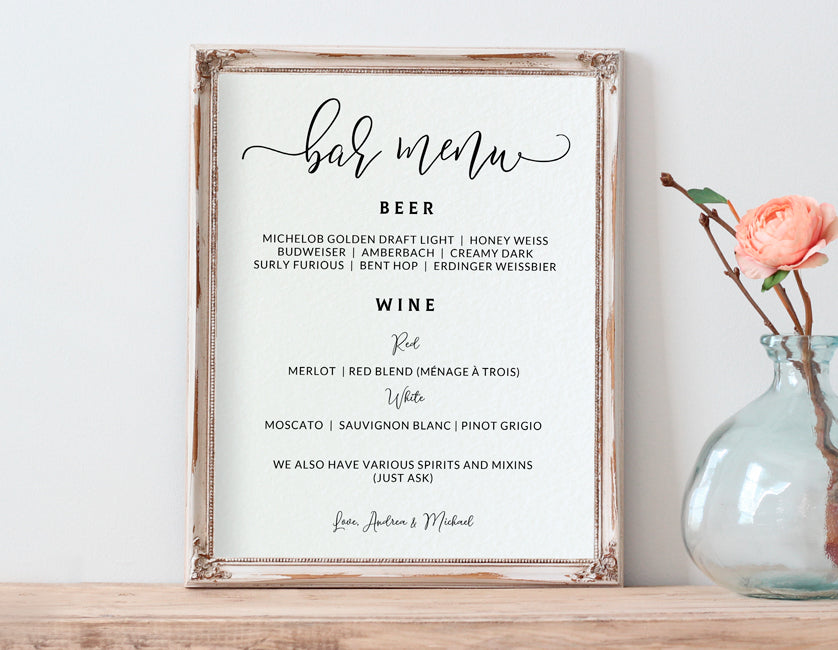 bar menu
BEER
MICHELOB GOLDEN DRAFT LIGHT | HONEY WEISS
BUDWEISER | AMBERBACH | CREAMY DARK
SURLY FURIOUS | BENT HOP | ERDINGER WEISSBIER
WINE
Red
MERLOT | RED BLEND (MÉNAGE À TROIS)
White
MOSCATO | SAUVIGNON BLANC | PINOT GRIGIO
WE ALSO HAVE VARIOUS SPIRITS AND MIXINS
(JUST ASK)
Love, Andrea & Michael